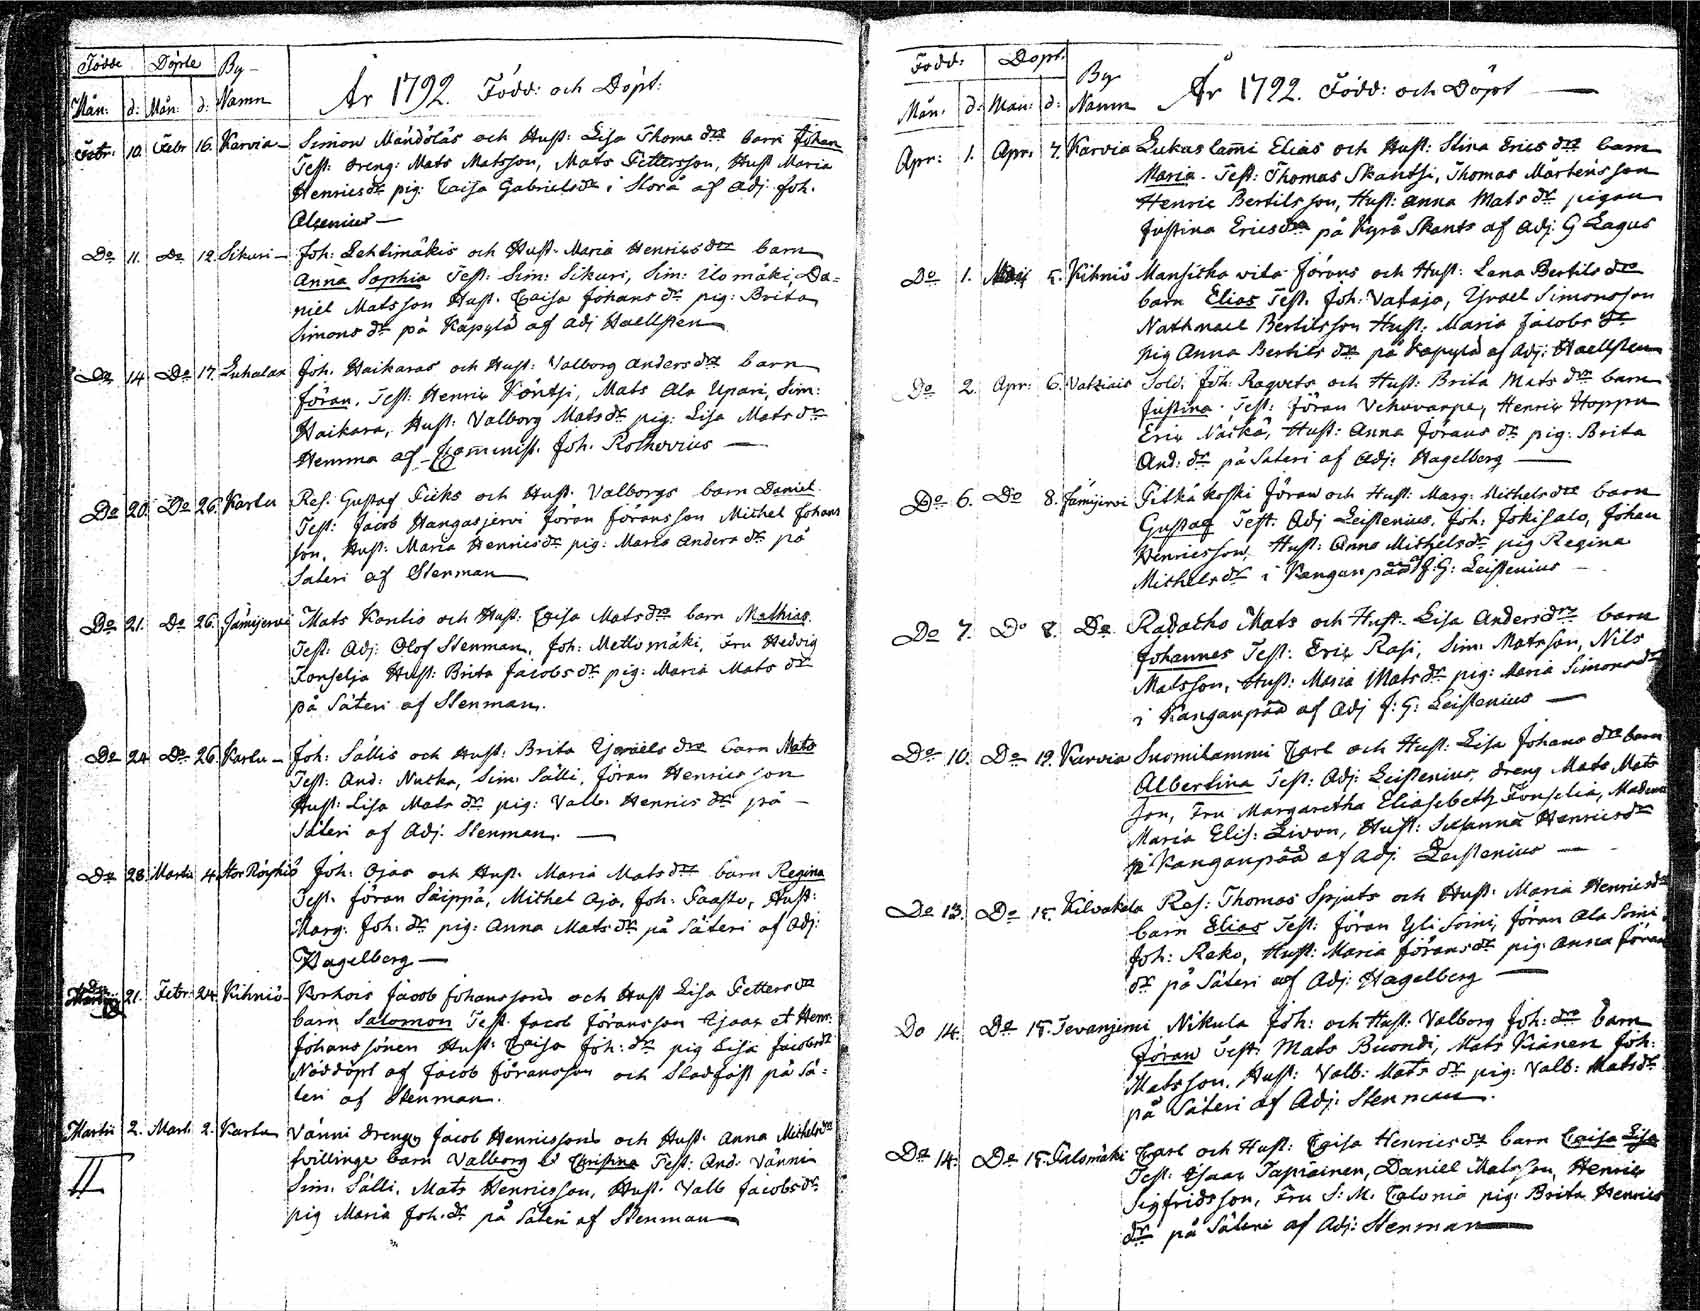 Födde Döpte By-
Mån: d: Mån: d: Namn
År 1792. Född: och Döpt:
Febr: 10. Febr 16. Karvia- Simon Mändöläs och Hust: Lisa Thoma dtr barn Johan
Test: dreng: Mats Matsson, Mats Pettersson, Hust Maria
Henricsdr pig: Caisa Gabrielsdr i Storå af Adj: Joh.
Alcenius-
Do 11. Do 12. Sikuri- Joh: Lehtimäkis och Hust. Maria Henricsdtr barn
Anna Sophia Test: Sim: Sikuri, Sim: Ilomäki, Da=
niel Matsson Hust. Caisa Johans dr pig: Brita
Simons dr på Kapylä af Adj Haellsten
Do 14 Do 17. Luhalax Joh. Haikaras och Hust: Valborg Anders dtr barn
Jöran, Test: Henrix Köntsi, Mats Ala Upari, Sim:
Haikara, Hust: Valborg Mats dr pig: Lisa Mats dr
Hemma af Comminist. Joh. Rothovius-
Do 20. Do 26. Kartu Res: Gustaf Fiiks och Hust. Valborgs barn Daniel
Test: Jacob Hangasjervi Jöran Jöransson Michel Johans
son, Hust: Maria Henricsdr pig: Maria Anders dr på
Säteri af Stenman
Do 21. Do 26. Jämijervi Mats Kontio och Hust: Caisa Matsdtr barn Mathias
Test: Adj: Olof Stenman, Joh: Mettomäki, Fru Hedvig
Fonselia Hust: Brita Jacobs dr pig: Maria Mats dr
på Säteri af Stenman.
Do 24 Do 26. Kartu- Joh: Sällis och Hust: Brita Ysraels dtr barn Mats
Test: And: Nuska, Sim: Sälli, Jöran Henricsson
Hust: Lisa Mats dr pig: Valb: Henrics dr på-
Säteri af Adj: Stenman.-
Do 28. Martii 4. Stor Röyhiö Joh: Ojas och Hust. Maria Mats dtr barn Regina
Test. Jöran Säippä, Michel Oja, Joh: Paasto, Hust:
Marg: Joh: dr pig: Anna Matsdr på Säteri af Adj:
Hagelberg-
21. Febr: 24. Kihniö- Korhois Jacob Johanssons och Hust Lisa Petters dtr
barn Salomon Test. Jacob Jöransson Ysaac et Henr:
Johanssönen Hust: Caisa Joh: dr pig Lisa Jacobsdr
Nöddöpt af Jacob Jöransson och Stadfäst på Sä:
teri af Stenman.
Martii 2. Marti 2. Kartu Vänni dreng Jacob Henricssons och Hust. Anna Michelsdtr
tvillinge barn Valborg & Christina Test: And: Vänni
II Sim: Sälli. Mats Henricsson, Hust. Valb Jacobsdr
pig Maria Joh: dr på Säteri af Stenman
Född: Döpt. By
Mån. d: Mån: d: Namn
År 1792. Född: och Döpt-
Apr: 1. Apr: 7. Karvia Lukaslami Elias och Hust: Stina Erics dtr barn
Maria. Test: Thomas Skantsi, Thomas Mårtensson
Henric Bertilsson, Hust: Anna Mats dr pigan
Justina Ericsdr på Kyrö Skants af Adj: G Lagus
Do 1. Maij 5. Kihniö Mansickavita Jörans och Hust: Lena Bertils dtr
barn Elias Test. Joh: Vataja, Ysrael Simonsson
Nathnael Bertilsson Hust: Maria Jacobs dr
Pig Anna Bertils dr på Kapylä af Adj: Haellsten
Do 2. Apr: 6. Vatziais Sold. Joh: Raqvets och Hust: Brita Mats dtr barn
Justina. Test: Jöran Vehuvarpe, Henrix Hoppu
Eric Naskä, Hust: Anna Jörans dr pig: Brita
And: dr på Säteri af Adj: Hagelberg-
Do 6. Do 8. Jämijervi Pitkäkoski Jöran och Hust: Marg: Michels dtr barn
Gustaf Test: Adj Leistenius. Joh: Jokisalo, Johan
Henricsson, Hust: Anna Michels dr pig Regina
Michels dr i Kanganpää af J:G: Leistenius-
Do 7. Do 8. Do Radatho Mats och Hust: Lisa Andersdtr barn
Johannes Test: Eric Rasi, Sim: Matsson, Nils
Matsson, Hust: Maria Mats dr pig: Maria Simonsdr
i Kanganpää af Adj J:G: Leistenius-
Do 10. Do 12. Karvia Suomilammi Carl och Hust: Lisa Johans dtr barn
Albertina Test: Adj: Leistenius, dreng Mats Mats
son, Fru Margaretha Eliasebeth Fonselia, Madem
Maria Elis: Livon, Hust: Susanna Henricsdr
på Kanganpää af Adj: Leistenius-
Do 13. Do 15. Kilvakala Res: Thomas Spjuts och Hust: Maria Henricsdtr
barn Elias Test: Jöran Yli Soini, Jöran Ala Soini
Joh: Reko, Hust: Maria Jöransdr pig: Anna Jöran
dr på Säteri af Adj: Hagelberg-
Do 14. Do 15. Tevanjemi Nikula Joh: och Hust: Valborg Joh: dtr barn
Jöran Test: Mats Buondi, Mats Kiänen Joh:
Matsson. Hust: Valb: Mats dr pig: Valb: Matsdr
på Säteri af Adj: Stenman.
Do 14. Do 15. Palomäki Carl och Hust: Caisa Henricsdtr barn Caisa Lisa
Test: Ysaac Tapiainen, Daniel Matsson, Henric
Sigfridsson, Fru S:M: Calonia pig: Brita Henrics
dr på Säteri af Adj: Stenman